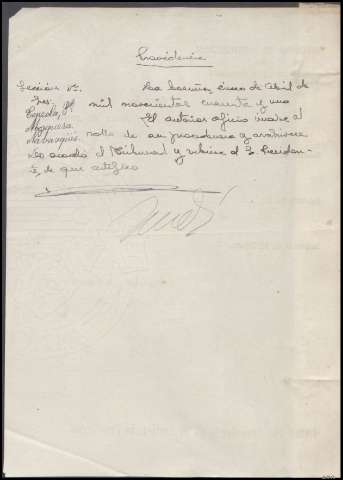 Providencia
Sección 1ª.
Sres.
La Coruña, cinco de Abril de
mil novecientos cuarenta y uno
El anterior oficio únase al
rollo de su procedencia y archívese
Lo acordó el Tribunal y rubrica el S. Presidente
de que certifico